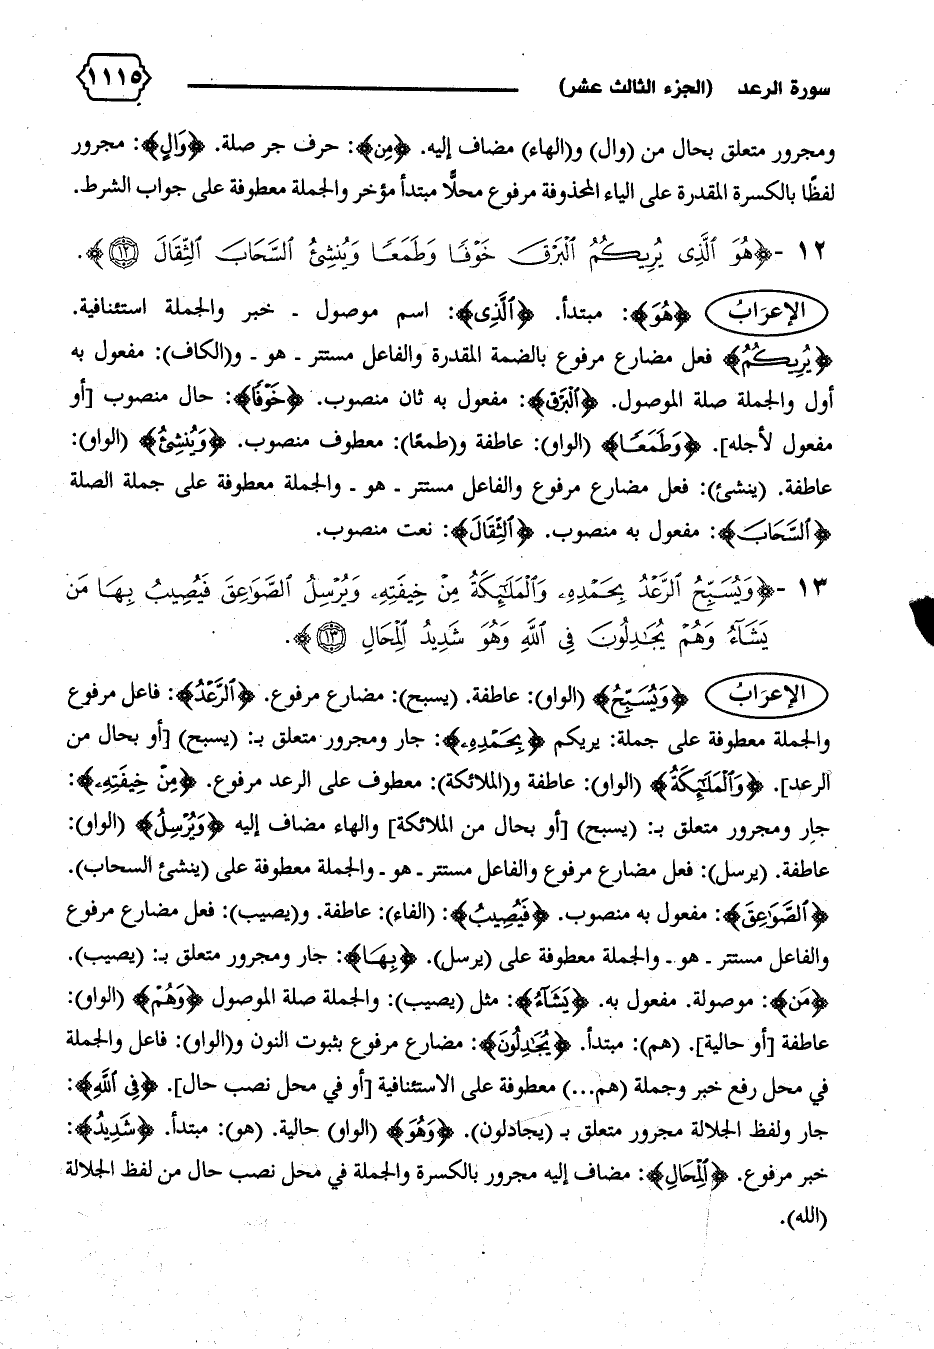 سورة الرعد (الجزء الثالث عشر) ١١١٥
ومجرور متعلق بحال من (وال) و(الهاء) مضاف إليه. ﴿مِن﴾: حرف جر صلة. ﴿وَالٍ﴾: مجرور
لفظًا بالكسرة المقدرة على الياء المحذوفة مرفوع محلًّا مبتدأ مؤخر والجملة معطوفة على جواب الشرط.
١٢ - ﴿هُوَ ٱلَّذِى يُرِيكُمُ ٱلْبَرْقَ خَوْفًا وَطَمَعًا وَيُنشِئُ ٱلسَّحَابَ ٱلثِّقَالَ ١٢﴾.
الإعرَابُ ﴿هُوَ﴾: مبتدأ. ﴿ٱلَّذِى﴾: اسم موصول - خبر والجملة استئنافية.
﴿يُرِيكُمُ﴾ فعل مضارع مرفوع بالضمة المقدرة والفاعل مستتر - هو - و(الكاف): مفعول به
أول والجملة صلة الموصول. ﴿ٱلْبَرْقَ﴾: مفعول به ثان منصوب. ﴿خَوْفًا﴾: حال منصوب [أو
مفعول لأجله]. ﴿وَطَمَعًا﴾ (الواو): عاطفة و(طمعًا): معطوف منصوب. ﴿وَيُنشِئُ﴾ (الواو):
عاطفة. (ينشئ): فعل مضارع مرفوع والفاعل مستتر - هو - والجملة معطوفة على جملة الصلة
﴿ٱلسَّحَابَ﴾: مفعول به منصوب. ﴿ٱلثِّقَالَ﴾: نعت منصوب.
١٣ - ﴿وَيُسَبِّحُ ٱلرَّعْدُ بِحَمْدِهِۦ وَٱلْمَلَٰٓئِكَةُ مِنْ خِيفَتِهِۦ وَيُرْسِلُ ٱلصَّوَٰعِقَ فَيُصِيبُ بِهَا مَن
يَشَآءُ وَهُمْ يُجَٰدِلُونَ فِى ٱللَّهِ وَهُوَ شَدِيدُ ٱلْمِحَالِ ١٣﴾.
الإعرَابُ ﴿وَيُسَبِّحُ﴾ (الواو): عاطفة. (يسبح): مضارع مرفوع. ﴿ٱلرَّعْدُ﴾: فاعل مرفوع
والجملة معطوفة على جملة: يريكم ﴿بِحَمْدِهِۦ﴾: جار ومجرور متعلق بـ: (يسبح) [أو بحال من
الرعد]. ﴿وَٱلْمَلَٰٓئِكَةُ﴾ (الواو): عاطفة و(الملائكة): معطوف على الرعد مرفوع. ﴿مِنْ خِيفَتِهِۦ﴾:
جار ومجرور متعلق بـ: (يسبح) [أو بحال من الملائكة] والهاء مضاف إليه ﴿وَيُرْسِلُ﴾ (الواو):
عاطفة. (يرسل): فعل مضارع مرفوع والفاعل مستتر - هو - والجملة معطوفة على (ينشئ السحاب).
﴿ٱلصَّوَٰعِقَ﴾: مفعول به منصوب. ﴿فَيُصِيبُ﴾: (الفاء): عاطفة. و(يصيب): فعل مضارع مرفوع
والفاعل مستتر - هو - والجملة معطوفة على (يرسل). ﴿بِهَا﴾: جار ومجرور متعلق بـ: (يصيب).
﴿مَن﴾: موصولة. مفعول به. ﴿يَشَآءُ﴾: مثل (يصيب): والجملة صلة الموصول ﴿وَهُمْ﴾ (الواو):
عاطفة [أو حالية]. (هم): مبتدأ. ﴿يُجَٰدِلُونَ﴾: مضارع مرفوع بثبوت النون و(الواو): فاعل والجملة
في محل رفع خبر وجملة (هم...) معطوفة على الاستئنافية [أو في محل نصب حال]. ﴿فِى ٱللَّهِ﴾:
جار ولفظ الجلالة مجرور متعلق بـ (يجادلون). ﴿وَهُوَ﴾ (الواو) حالية. (هو): مبتدأ. ﴿شَدِيدُ﴾:
خبر مرفوع. ﴿ٱلْمِحَالِ﴾: مضاف إليه مجرور بالكسرة والجملة في محل نصب حال من لفظ الجلالة
(الله).